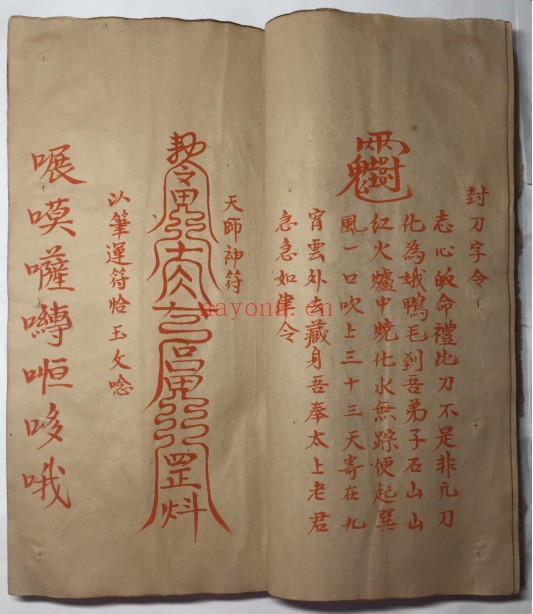 封刀字令
志心皈命禮此刀不是非凡刀
化為娥鴨毛到吾弟子石山山
紅火爐中燒化水無踪便起巽
風一口吹上三十三天寄在九
宵雲外去藏身吾奉太上老君
急急如律令
天師神符
勅令
罡
以筆運符恰玉文唸
嗼哆哦
nayona.cn